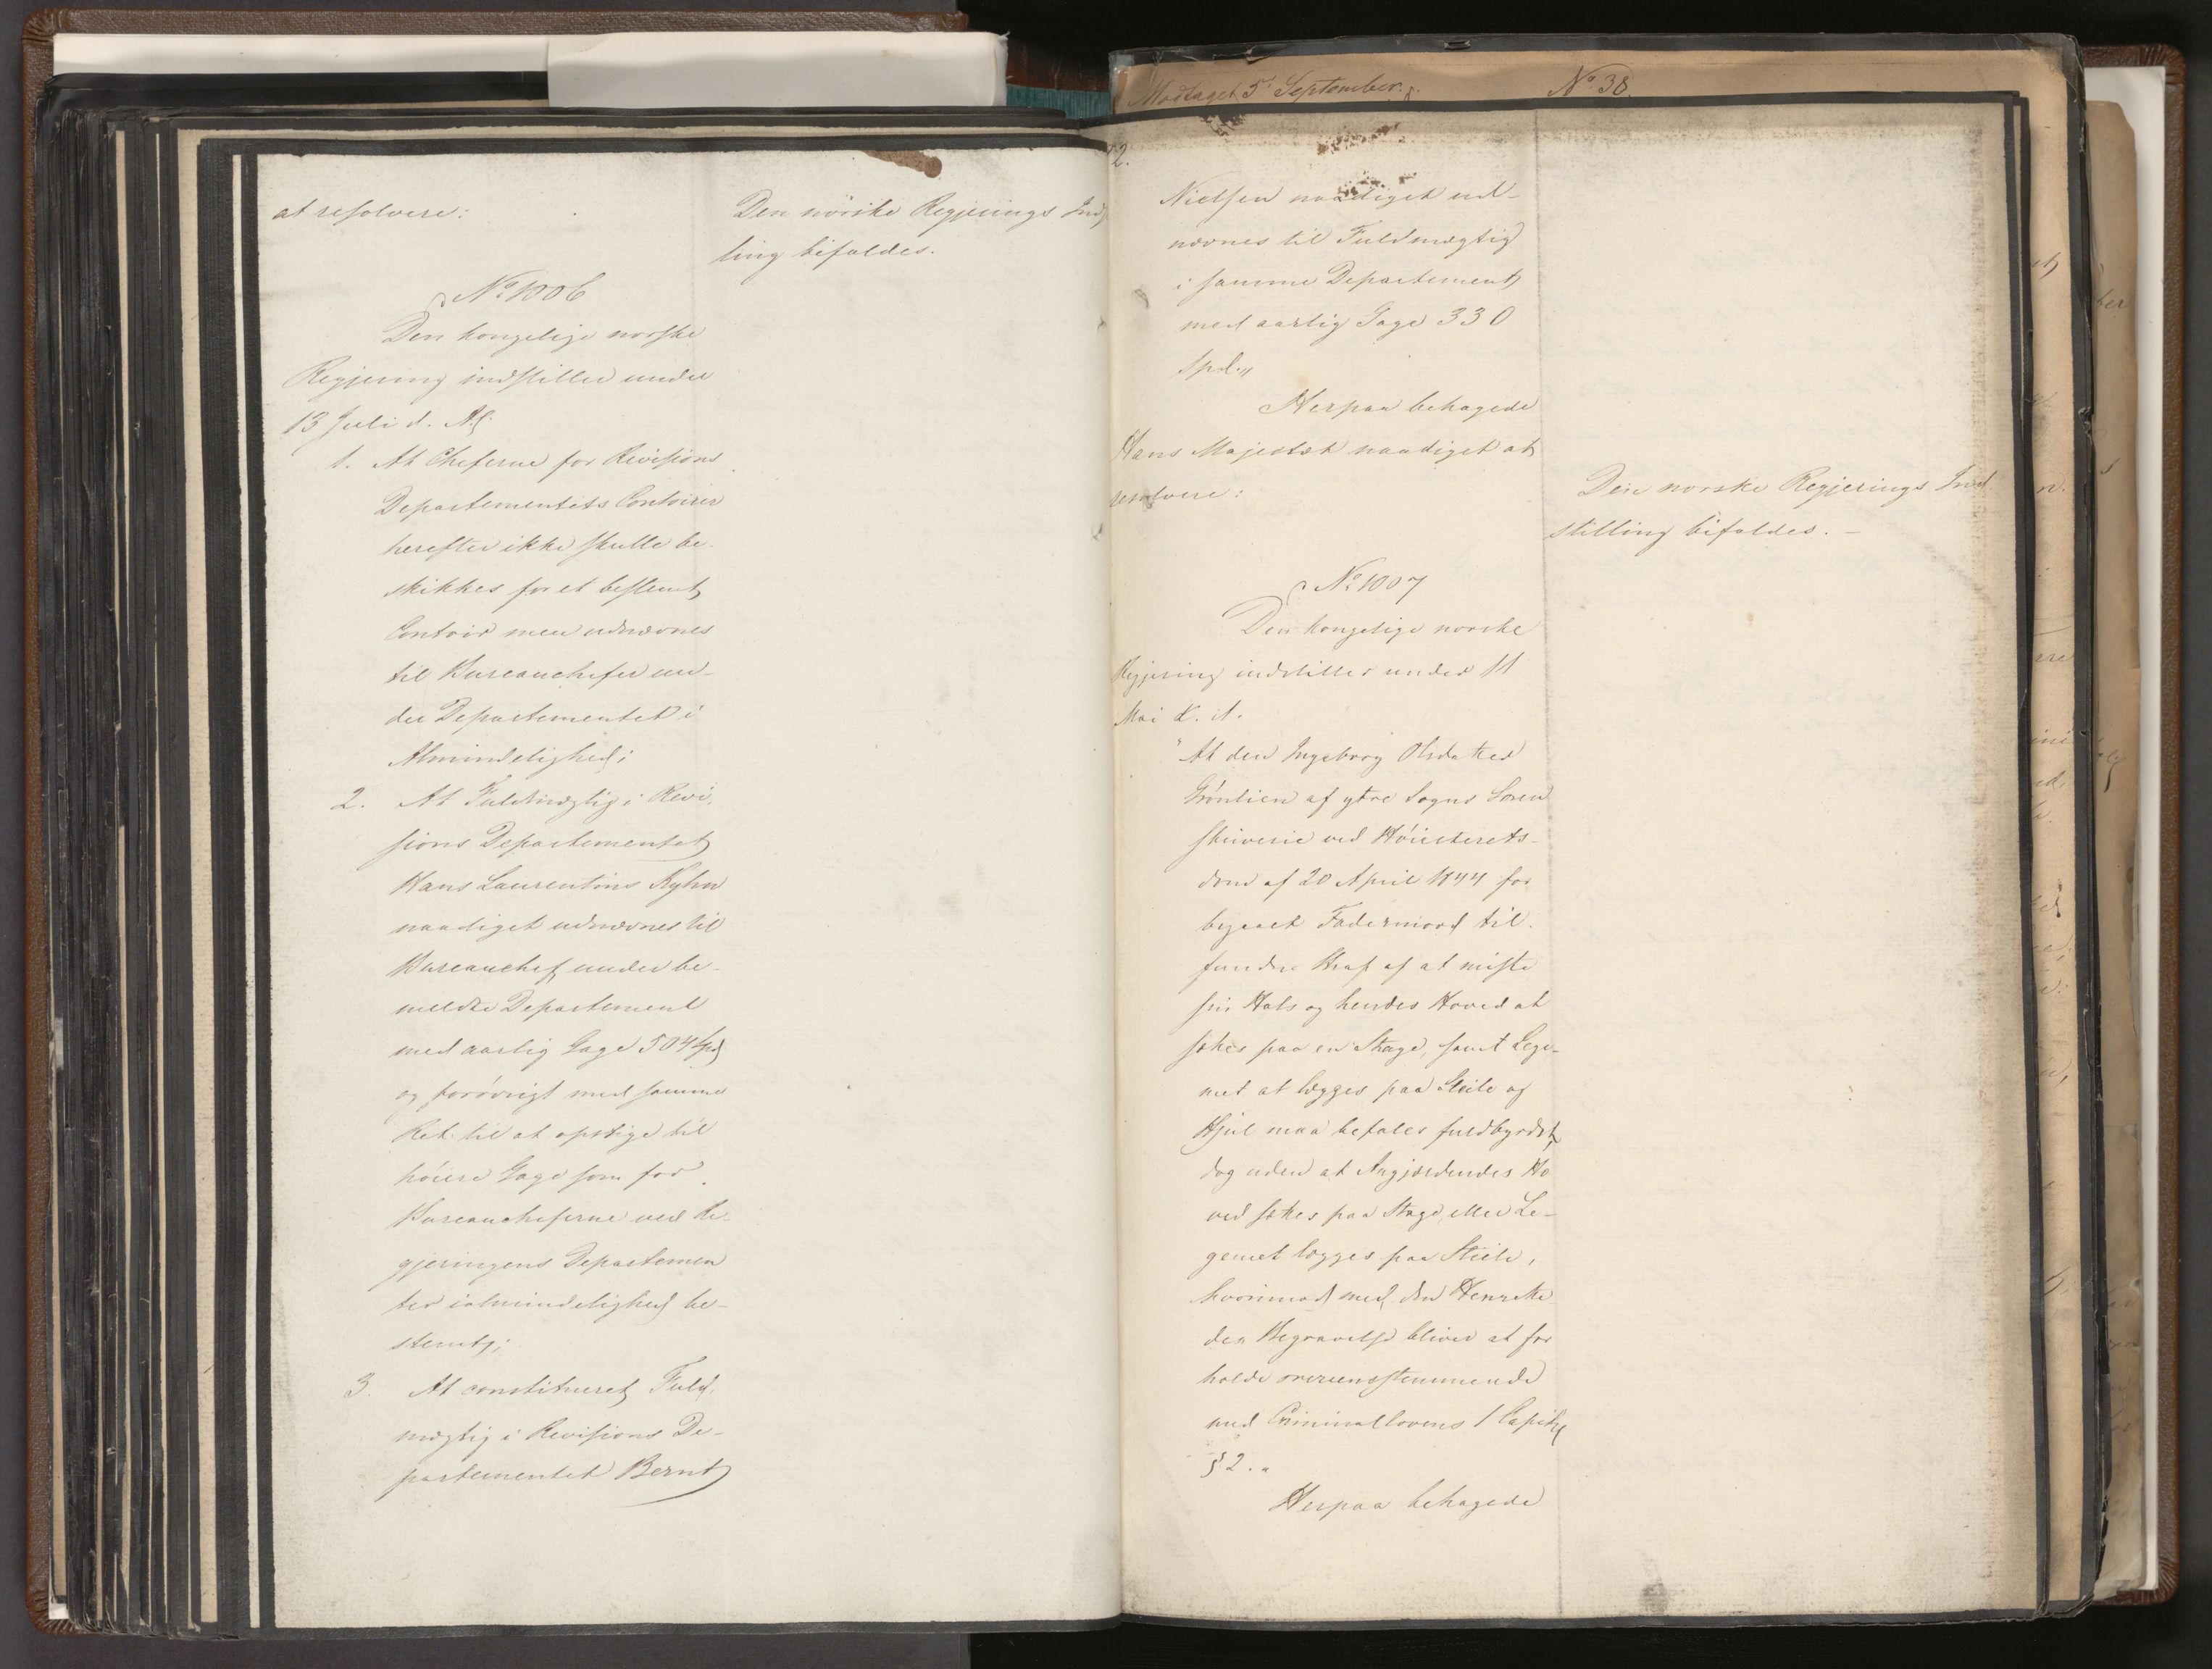 at resolvere:
Den nörske Regjerings Ind
ling bifaldes.
No 1006
Den kongelige norske
Regjering indstiller under
13 Juli d. A.
1. At Cheferne for Revisions
Departementets Contoirer
herefter ikke skulle be-
skikkes for et bestemt
Contoir men udnævnes
til Bureauchefer un-
der Departementet i
Almindelighed;
2. At Fuldmægtig i Revi-
sions Departementet
Hans Laurentius Kyhn
naadigst udnævnes til
Bureauchef under be-
meldte Departement
med aarlig Gage 504 Spd
og forövrigt med samme
Ret til at opstige til
höiere Gage som for
Bureaucheferne ved Re-
gjeringens Departemen
ter i almindelighed be-
stemt;
3. At constitueret Fuld-
mægtig i Revisions De-
partementet Bernt
Modtaget 5t September.
No 38.
2.
Nielsen naadigst ud-
nævnes til Fuldmægtig
i samme Departement
med aarlig Gage 330
Spd."
Herpaa behagede
Hans Majestæt naadigst at
resolvere:
Den norske Regjerings Ind
stilling bifaldes. -
No 1007
Den kongelige norske
Regjering indstiller under 11
Mai d. A.
"At den Ingeborg Olsdatter
Grönlien af ytre Sogns Soren
skriverie ved Höiesterets-
dom af 20 April 1844 for
begaaet Fadermord til-
fundne Straf af at miste
sin Hals og hendes Hoved at
sættes paa en Stage, samt Lege-
met at lægges paa Steile og
Hjul maa befales fuldbyrdet,
dog uden at Angjældendes Ho
ved sættes paa Stage, eller Le-
gemet lægges paa Steile,
hvorimod med den Henrette
des Begravelse bliver at for
holde overeensstemmende
med Criminallovens 1 Capitel
§ 2."
Herpaa behagede